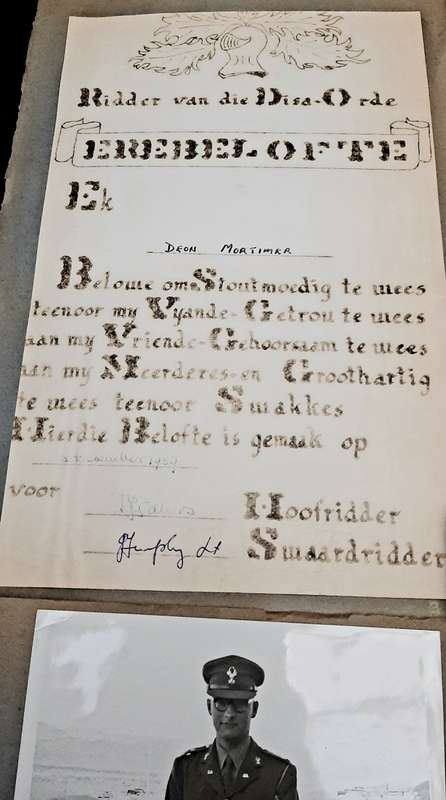 Ridder van die Disa-Orde
EREBELOFTE
Ek
DEON MORTIMER
Belowe om Stoutmoedig te wees
teenoor my Vyande-Getrou te wees
aan my Vriende-Gehoorsaam te wees
aan my Meerderes-en Groothartig
te wees teenoor Swakkes
Hierdie Belofte is gemaak op
voor
Hoofridder
Swaardridder